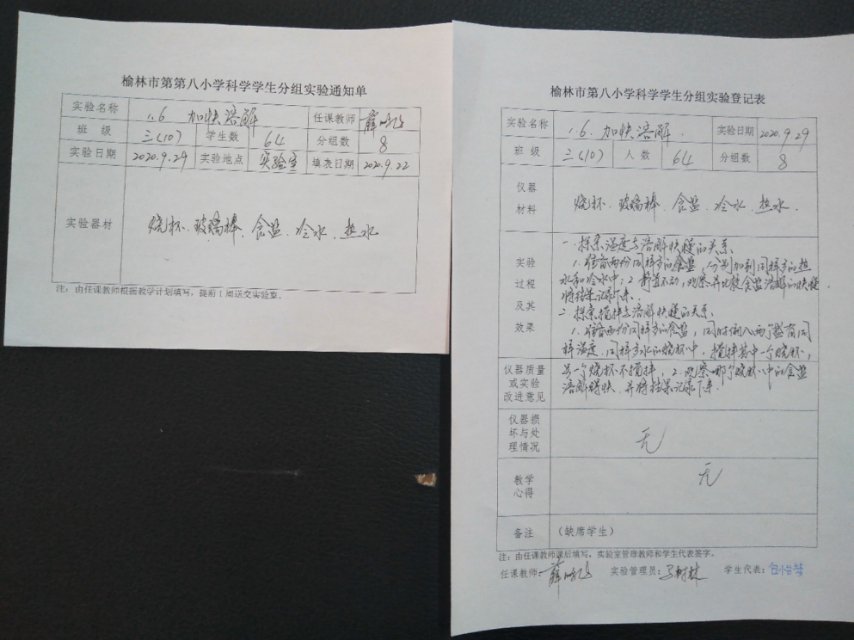 榆林市第第八小学科学学生分组实验通知单
实验名称 1.6 加快溶解 任课教师
班 级 三(10) 学生数 64 分组数 8
实验日期 2020.9.29 实验地点 实验室 填表日期 2020.9.22
实验器材 烧杯、玻璃棒、食盐、冷水、热水
注：由任课教师根据教学计划填写，提前1周送交实验室。
榆林市第八小学科学学生分组实验登记表
实验名称 1.6. 加快溶解. 实验日期 2020.9.29
班 级 三(10) 人 数 64 分组数 8
仪器
材料
烧杯、玻璃棒、食盐、冷水、热水.
实验
过程
及其
效果
一. 探索温度与溶解快慢的关系
1. 准备两份同样多的食盐，分别加到同样多的热
水和冷水中，2. 静置不动，观察并比较食盐溶解的快慢，
将结果记录下来.
二. 探索搅拌与溶解快慢的关系.
1. 准备两份同样多的食盐，同时倒入两个盛有同
样温度、同样多水的烧杯中，搅拌其中一个烧杯，
另一个烧杯不搅拌，2. 观察哪个烧杯中的食盐
溶解得快，并将结果记录下来.
仪器质量
或实验
改进意见
仪器损
坏与处
理情况
无
教学
心得
无
备注 （缺席学生）
注：由任课教师课后填写，实验室管理教师和学生代表签字。
任课教师： 实验管理员： 学生代表：